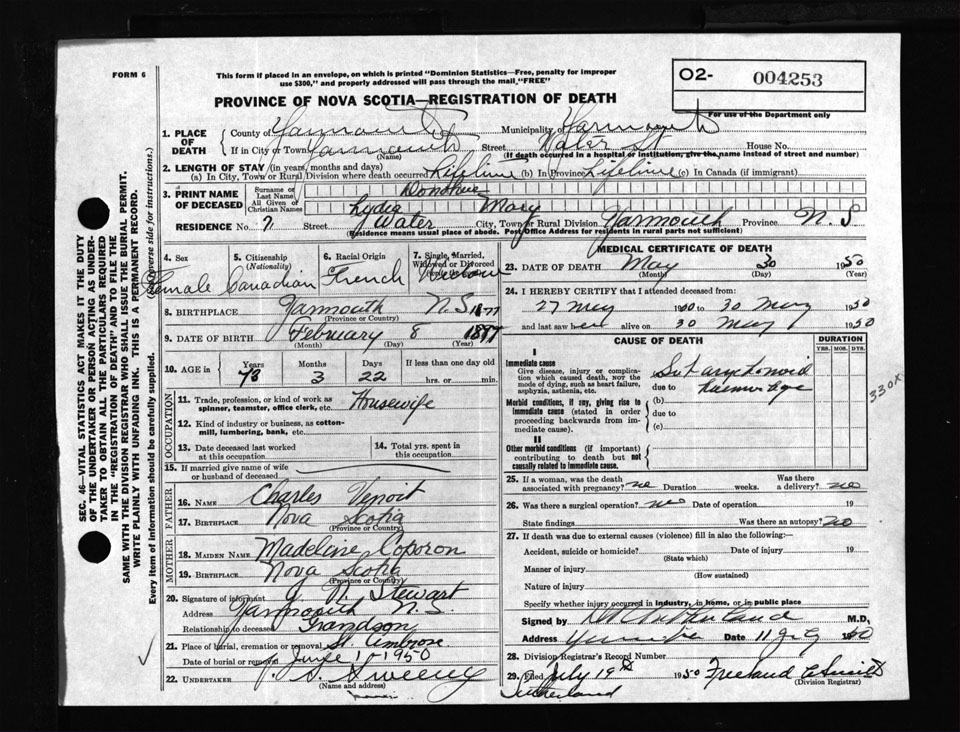 FORM 6
This form if placed in an envelope, on which is printed "Dominion Statistics—Free, penalty for improper
use $300," and properly addressed will pass through the mail "FREE"
O2- 004253
For use of the Department only
PROVINCE OF NOVA SCOTIA—REGISTRATION OF DEATH
1. PLACE OF DEATH
County of Yarmouth Municipality of Yarmouth
If in City or Town Yarmouth Street Water St House No.
(Name) (If death occurred in a hospital or institution, give the name instead of street and number)
2. LENGTH OF STAY (in years, months and days)
(a) In City, Town or Rural Division where death occurred Lifetime (b) In Province Lifetime (c) In Canada (if immigrant)
3. PRINT NAME OF DECEASED
Surname or Last Name Donohue
All Given or Christian Names Lydia Mary
RESIDENCE No. 71 Street Water City, Town or Rural Division Yarmouth Province N.S
(Residence means usual place of abode. Post Office Address for residents in rural parts not sufficient)
4. Sex Female
5. Citizenship (Nationality) Canadian
6. Racial Origin French
7. Single, Married, Widowed or Divorced
8. BIRTHPLACE Yarmouth N.S.
(Province or Country)
1877
9. DATE OF BIRTH February 8
(Month) (Day) (Year)
10. AGE in Years Months Days If less than one day old
73 3 22 hrs. or min.
OCCUPATION
11. Trade, profession, or kind of work as spinner, teamster, office clerk, etc. Housewife
12. Kind of industry or business, as cotton-mill, lumbering, bank, etc.
13. Date deceased last worked at this occupation
14. Total yrs. spent in this occupation
15. If married give name of wife or husband of deceased
FATHER
16. NAME Charles
17. BIRTHPLACE Nova Scotia
(Province or Country)
MOTHER
18. MAIDEN NAME Madeline Coporon
19. BIRTHPLACE Nova Scotia
(Province or Country)
20. Signature of informant J. W. Stewart
Address Yarmouth N.S.
Relationship to deceased Grandson
21. Place of burial, cremation or removal St. Ambrose
Date of burial or removal June 1 - 1950
22. UNDERTAKER Sweeny
(Name and address)
MEDICAL CERTIFICATE OF DEATH
23. DATE OF DEATH May 30 1950
(Month) (Day) (Year)
24. I HEREBY CERTIFY that I attended deceased from:
27 May 1950 to 30 May 1950
and last saw her alive on 30 May 1950
CAUSE OF DEATH
DURATION
YRS. MOS. DYS.
I
Immediate cause
Give disease, injury or complication which caused death, not the mode of dying, such as heart failure, asphyxia, asthenia, etc.
(a)
due to
Morbid conditions, if any, giving rise to immediate cause (stated in order proceeding backwards from immediate cause).
(b)
due to
(c)
330X
II
Other morbid conditions (if important) contributing to death but not causally related to immediate cause.
25. If a woman, was the death associated with pregnancy? no Duration weeks. Was there a delivery? no
26. Was there a surgical operation? no Date of operation 19
State findings Was there an autopsy? no
27. If death was due to external causes (violence) fill in also the following:—
Accident, suicide or homicide? Date of injury 19
(State which)
Manner of injury
(How sustained)
Nature of injury
Specify whether injury occurred in industry, in home, or in public place
Signed by M.D,
Address Date 11 1950
28. Division Registrar's Record Number
29. Filed July 19th 1950 Freeland
(Division Registrar)
Sutherland
SEC. 46—VITAL STATISTICS ACT MAKES IT THE DUTY
OF THE UNDERTAKER OR PERSON ACTING AS UNDER-
TAKER TO OBTAIN ALL THE PARTICULARS REQUIRED
IN THE "REGISTRATION OF DEATH" AND TO FILE THE
SAME WITH THE DIVISION REGISTRAR WHO SHALL ISSUE THE BURIAL PERMIT.
WRITE PLAINLY WITH UNFADING INK. THIS IS A PERMANENT RECORD.
Every item of information should be carefully supplied. (Reverse side for instructions.)